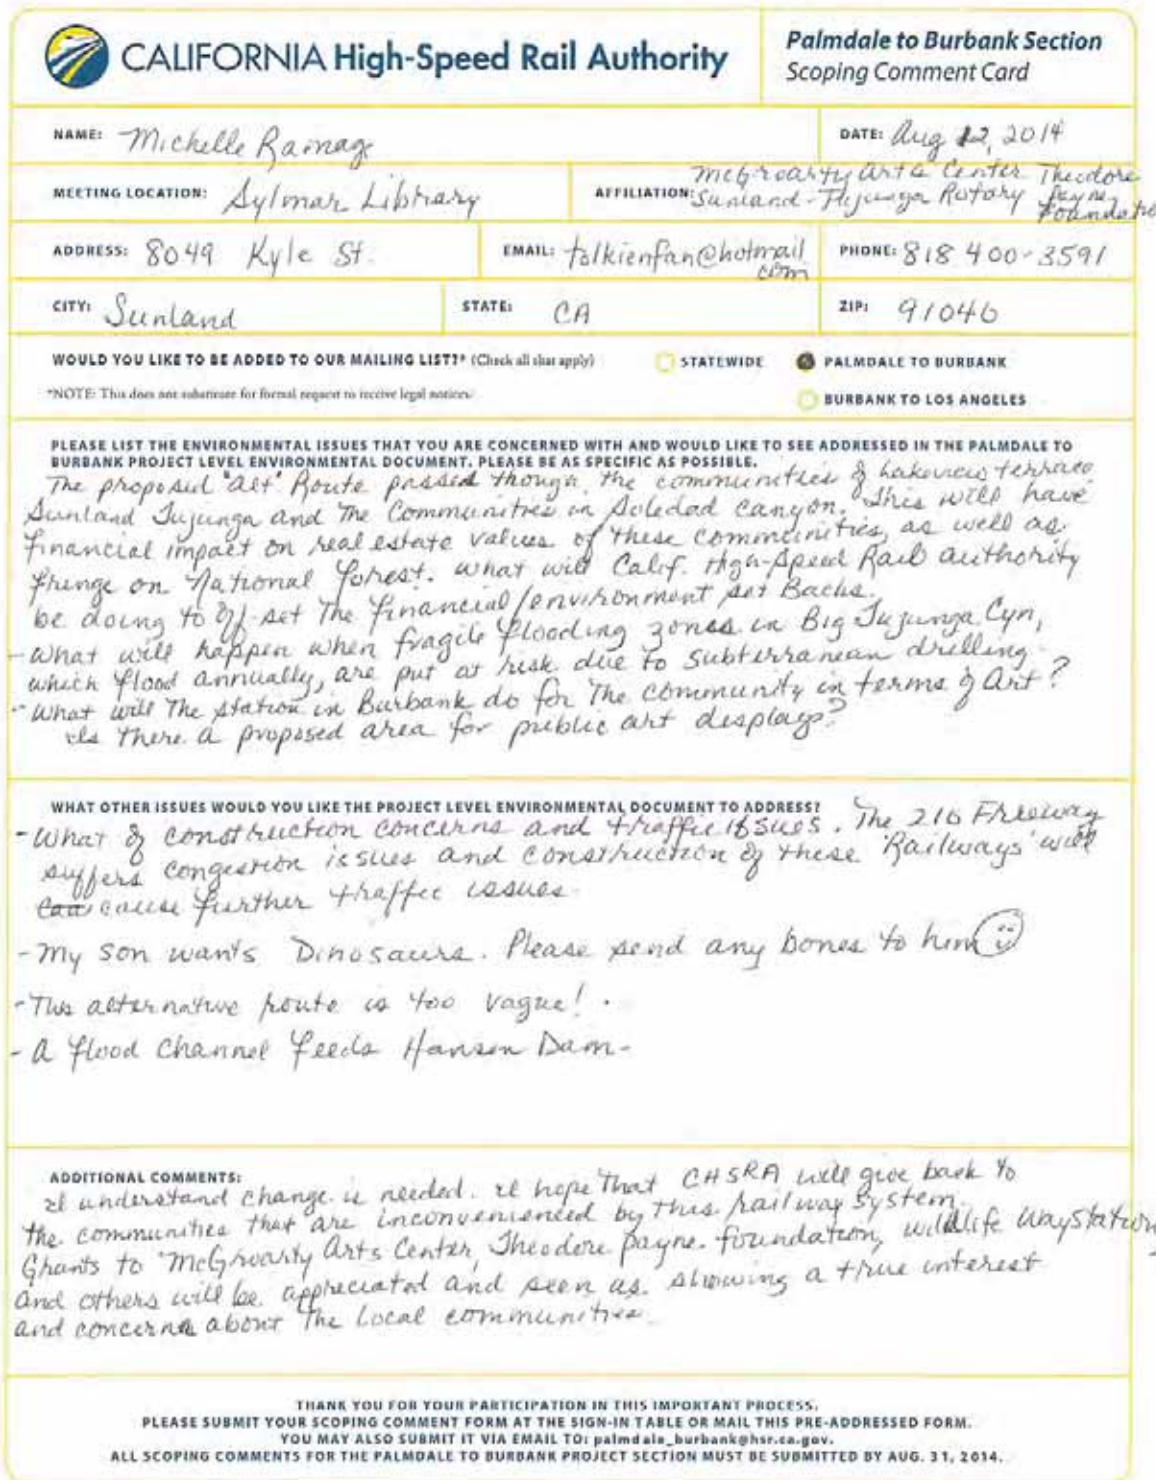 CALIFORNIA High-Speed Rail Authority
Palmdale to Burbank Section
Scoping Comment Card
NAME: Michelle Ramage
DATE: Aug 12, 2014
MEETING LOCATION: Sylmar Library
AFFILIATION: McGroarty Arts Center Theodore
Sunland-Tujunga Rotary Payne
Foundatio
ADDRESS: 8049 Kyle St.
EMAIL: tolkienfan@hotmail
com
PHONE: 818 400-3591
CITY: Sunland
STATE: CA
ZIP: 91040
WOULD YOU LIKE TO BE ADDED TO OUR MAILING LIST?* (Check all that apply)
STATEWIDE
PALMDALE TO BURBANK
*NOTE: This does not substitute for formal request to receive legal notices.
BURBANK TO LOS ANGELES
PLEASE LIST THE ENVIRONMENTAL ISSUES THAT YOU ARE CONCERNED WITH AND WOULD LIKE TO SEE ADDRESSED IN THE PALMDALE TO
BURBANK PROJECT LEVEL ENVIRONMENTAL DOCUMENT. PLEASE BE AS SPECIFIC AS POSSIBLE.
The proposed "alt" Route passed though the communities of Lakeview terrace
Sunland Tujunga and The Communities in Soledad Canyon. This will have
financial impact on real estate values of these communities, as well as
fringe on National forest. what will Calif. High-Speed Rail authority
be doing to off-set The financial/environment set Backs.
- what will happen when fragile flooding zones in Big Tujunga Cyn,
which flood annually, are put at risk due to subterranean drilling.
- What will The station in Burbank do for The community in terms of Art?
Is there a proposed area for public art displays?
WHAT OTHER ISSUES WOULD YOU LIKE THE PROJECT LEVEL ENVIRONMENTAL DOCUMENT TO ADDRESS?
- What of construction concerns and traffic issues. The 210 Freeway
suffers congestion issues and construction of these 'Railways' will
cause further traffic issues.
- My son wants Dinosaurs. Please send any bones to him
- This alternative route is too vague!.
- A flood Channel feeds Hansen Dam-
ADDITIONAL COMMENTS:
I understand change is needed. I hope that CHSRA will give back to
the communities that are inconvenienced by this railway system.
Grants to McGroarty Arts Center, Theodore payne foundation, wildlife WayStation,
and others will be appreciated and seen as showing a true interest
and concerns about The local communities.
THANK YOU FOR YOUR PARTICIPATION IN THIS IMPORTANT PROCESS.
PLEASE SUBMIT YOUR SCOPING COMMENT FORM AT THE SIGN-IN TABLE OR MAIL THIS PRE-ADDRESSED FORM.
YOU MAY ALSO SUBMIT IT VIA EMAIL TO: palmdale_burbank@hsr.ca.gov.
ALL SCOPING COMMENTS FOR THE PALMDALE TO BURBANK PROJECT SECTION MUST BE SUBMITTED BY AUG. 31, 2014.